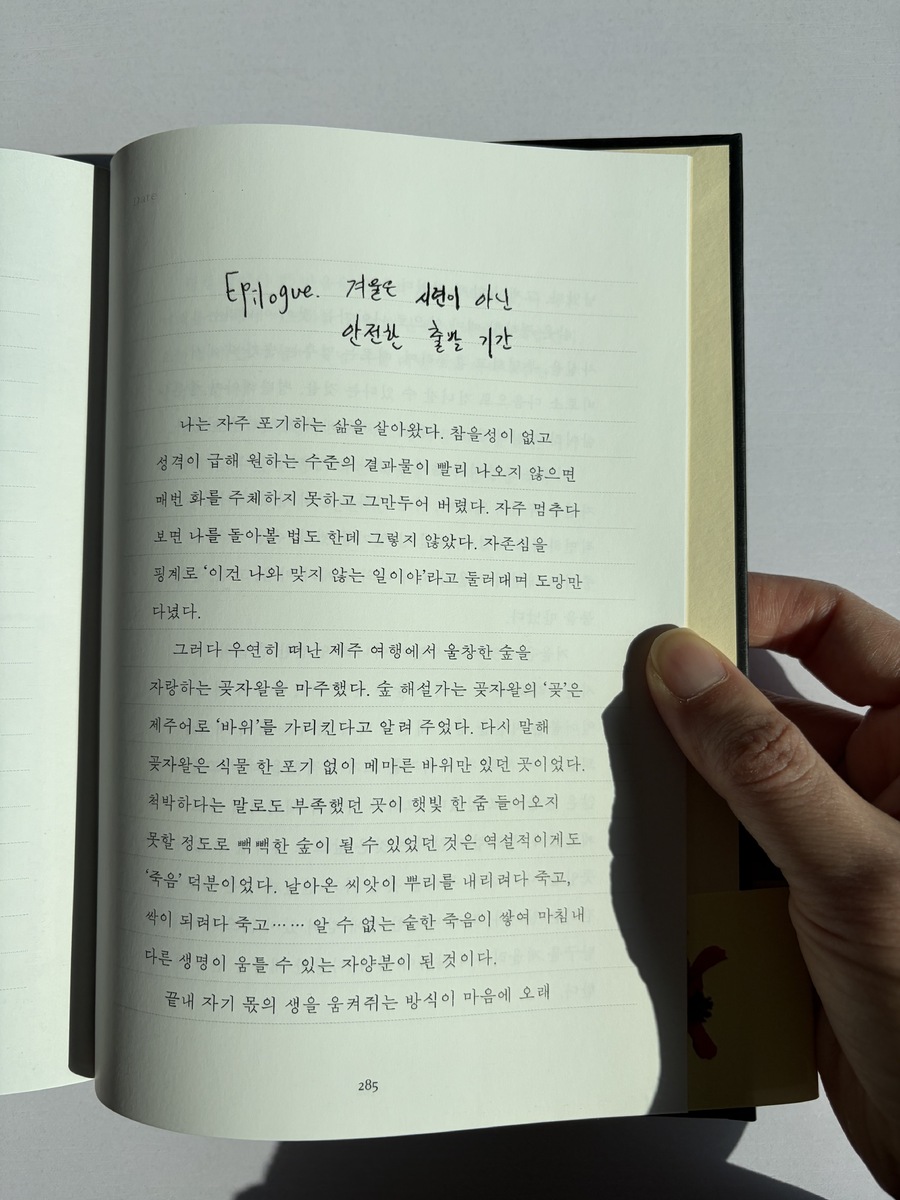 Epilogue. 겨울은 시련이 아닌
안전한 출발 기간
나는 자주 포기하는 삶을 살아왔다. 참을성이 없고
성격이 급해 원하는 수준의 결과물이 빨리 나오지 않으면
매번 화를 주체하지 못하고 그만두어 버렸다. 자주 멈추다
보면 나를 돌아볼 법도 한데 그렇지 않았다. 자존심을
핑계로 ‘이건 나와 맞지 않는 일이야’라고 둘러대며 도망만
다녔다.
그러다 우연히 떠난 제주 여행에서 울창한 숲을
자랑하는 곶자왈을 마주했다. 숲 해설가는 곶자왈의 ‘곶’은
제주어로 ‘바위’를 가리킨다고 알려 주었다. 다시 말해
곶자왈은 식물 한 포기 없이 메마른 바위만 있던 곳이었다.
척박하다는 말로도 부족했던 곳이 햇빛 한 줌 들어오지
못할 정도로 빽빽한 숲이 될 수 있었던 것은 역설적이게도
‘죽음’ 덕분이었다. 날아온 씨앗이 뿌리를 내리려다 죽고,
싹이 되려다 죽고…… 알 수 없는 숱한 죽음이 쌓여 마침내
다른 생명이 움틀 수 있는 자양분이 된 것이다.
끝내 자기 몫의 생을 움켜쥐는 방식이 마음에 오래
285